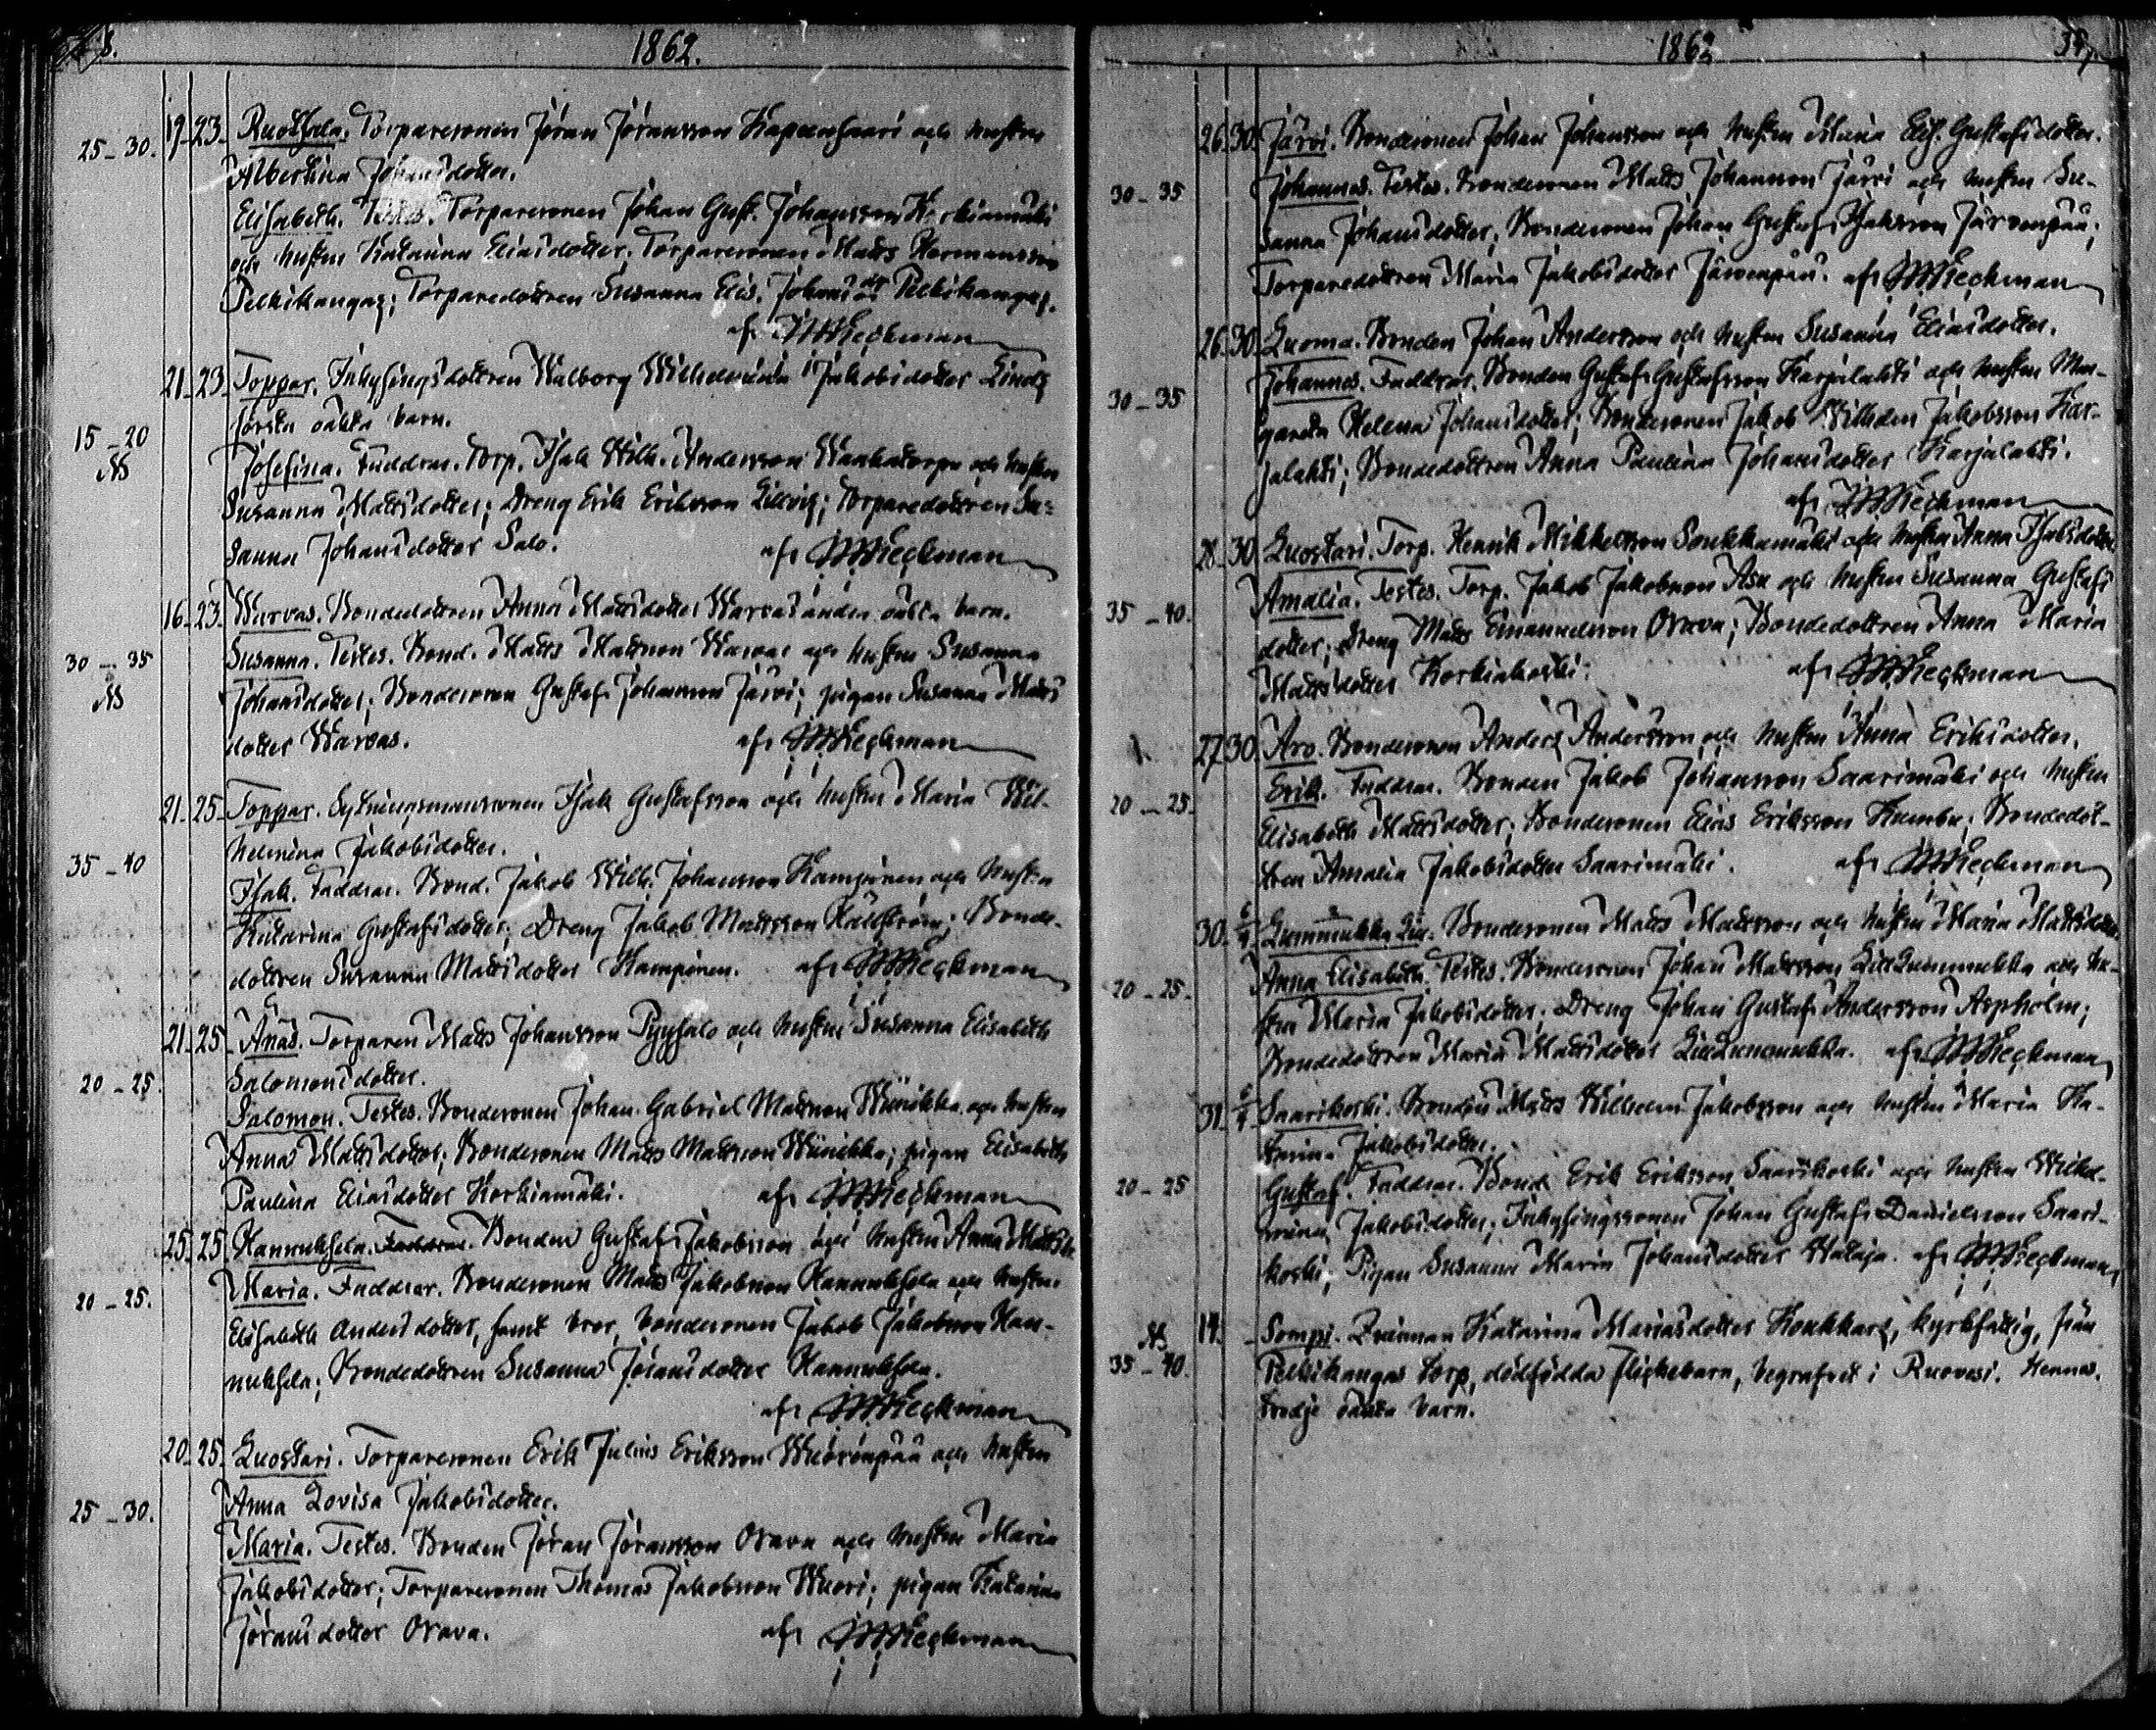 8.
1862.
25-30. 19-23. Ruoksela. Torparesonen Jöran Jöransson Kapeensaari och hustru
Albertina Johansdotter.
Elisabeth. Testes. Torparesonen Johan Gust. Johansson Korkiamäki
och hustru Katarina Eliasdotter; Torparesonen Matts Hermansson
Pelkikangas; Torparedottren Susanna Elis. Johansdr Pelkikangas.
afr Wieckman
21-23. Toppar. Inhysingsdottren Walborg Wilhelmina Jakobsdotter Linds
första oäkta barn.
15-20
Josefina. Faddrar. Torp. Isak Wilh. Andersson Wanhatorpa och hustru
Susanna Mattsdotter; Dreng Erik Eriksson Lillvis; Torparedottren Su-
sanna Johansdotter Salo. afr Wieckman
16-23. Warvas. Bondedottren Anna Mattsdotter Warvas andra oäkta barn.
30-35
Susanna. Testes. Bond. Matts Mattsson Warvas och hustru Susanna
Johansdotter; Bondesonen Gustaf Johansson Järvi; pigan Susanna Matts
dotter Warvas. afr Wieckman
21-25. Toppar. Sytningsmanssonen Isak Gustafsson och hustru Maria Wil-
helmina Jakobsdotter.
35-40
Isak. Faddrar. Bond. Jakob Wilh. Johansson Kampinen och hustru
Katarina Gustafsdotter; Dreng Jakob Mattsson Källström; Bonde-
dottren Susanna Mattsdotter Kampinen. afr Wieckman
21-25. Änäs. Torparen Matts Johansson Pyysalo och hustru Susanna Elisabeth
Salomonsdotter.
20-25.
Salomon. Testes. Bondesonen Johan Gabriel Mattsson Wiinikka och hustru
Anna Mattsdotter; Bondesonen Matts Mattsson Wiinikka; pigan Elisabeth
Paulina Eliasdotter Korkiamäki. afr Wieckman
25-25. Hannuksela. Bonden Gustaf Jakobsson och hustru Anna Mattsdr.
20-25.
Maria. Faddrar. Bondesonen Matts Jakobsson Hannuksela och hustru
Elisabeth Andersdotter, samt bror, bondesonen Jakob Jakobsson Han-
nuksela; Bondedottren Susanna Jöransdotter Hannuksela.
afr Wieckman
20-25. Luostari. Torparesonen Erik Julius Eriksson Wuorenpää och hustru
Anna Lovisa Jakobsdotter.
25-30.
Maria. Testes. Bonden Jöran Jöransson Orava och hustru Maria
Jakobsdotter; Torparesonen Thomas Jakobsson Wuori; pigan Katarina
Jöransdotter Orava. afr Wieckman
1862
39.
26-30. Järvi. Bondesonen Johan Johansson och hustru Maria Elis. Gustafsdotter.
30-35
Johannes. Testes. Bondesonen Matts Johansson Järvi och hustru Su-
sanna Johansdotter; Bondesonen Johan Gustaf Isaksson Järvenpää;
Torparedottren Maria Jakobsdotter Järvenpää. afr Wieckman
26-30. Luoma. Bonden Johan Andersson och hustru Susanna Eliasdotter.
30-35
Johannes. Faddrar. Bonden Gustaf Gustafsson Karjalahti och hustru Mar-
gareta Helena Johansdotter; Bondesonen Jakob Wilhelm Jakobsson Kar-
jalahti; Bondedottren Anna Paulina Johansdotter Karjalahti.
afr Wieckman
28-30. Luostari. Torp. Henrik Mikkelsson Soukkamäki och hustru Anna Isaksdotter.
35-40.
Amalia. Testes. Torp. Jakob Jakobsson Asu och hustru Susanna Gustafs
dotter; Dreng Matts Emanuelsson Orava; Bondedottren Anna Maria
Mattsdotter Korkiakoski. afr Wieckman
27-30. Aro. Bondesonen Anders Andersson och hustru Anna Eriksdotter.
20-25.
Erik. Faddrar. Bonden Jakob Johansson Saarimäki och hustru
Elisabeth Mattsdotter; Bondesonen Elias Eriksson Humbu; Bondedot-
tren Amalia Jakobsdotter Saarimäki. afr Wieckman
30. 6/4 Lummukka Lill. Bondesonen Matts Mattsson och hustru Maria Mattsdotter.
20-25.
Anna Elisabeth. Testes. Bondesonen Johan Mattsson Lill Lummukka och hu-
stru Maria Jakobsdotter; Dreng Johan Gustaf Andersson Aspholm;
Bondedottren Maria Mattsdotter Lill Lummukka. afr Wieckman
31. 6/4 Saarikoski. Bonden Matts Wilhelm Jakobsson och hustru Maria Ka-
tarina Jakobsdotter.
20-25
Gustaf. Faddrar. Bond. Erik Eriksson Saarikoski och hustru Wilhel-
mina Jakobsdotter; Inhysingssonen Johan Gustaf Danielsson Saari-
koski; Pigan Susanna Maria Johansdotter Hataja. afr Wieckman
14. Sompi. Qvinnan Katarina Mariasdotter Koukkari, kyrkfattig, från
35-40.
Pelkikangas torp, dödfödda flickebarn, begrafvet i Ruovesi. Hennes
tredje oäkta barn.